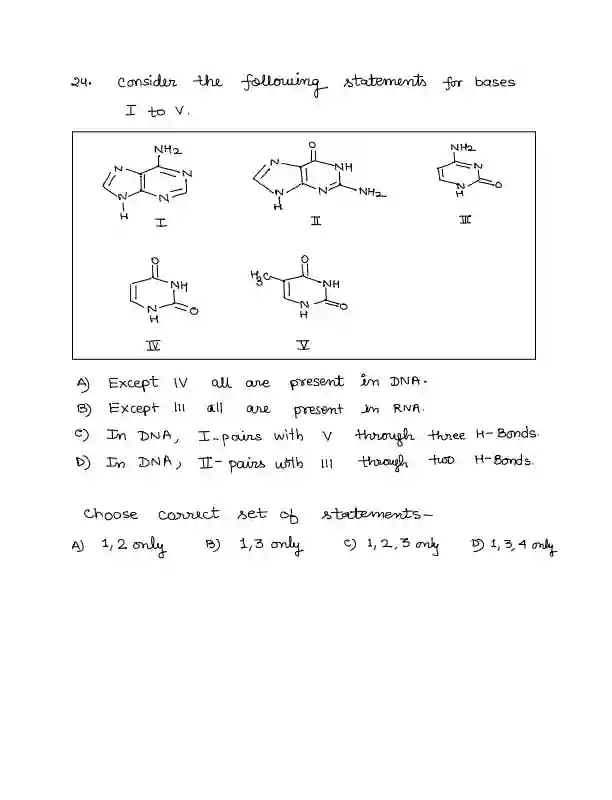 24. Consider the following statements for bases
I to V.
NH2
N
N
N
N
H
I
O
N
NH
N
N
NH2
H
II
NH2
N
N
H
O
III
O
NH
N
H
O
IV
O
H3C
NH
N
H
O
V
A) Except IV all are present in DNA.
B) Except III all are present in RNA.
C) In DNA, I-pairs with V through three H-Bonds.
D) In DNA, II-pairs with III through two H-Bonds.
Choose correct set of statements-
A) 1,2 only B) 1,3 only C) 1,2,3 only D) 1,3,4 only